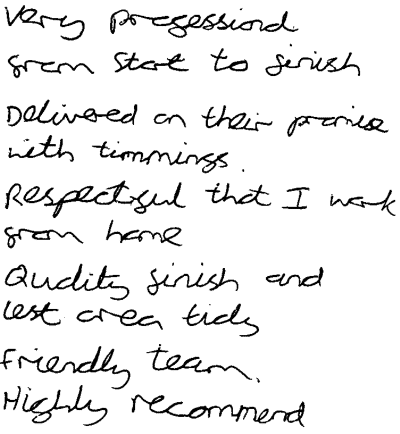 Very professional
from start to finish
Delivered on their promise
with timmings.
Respectful that I work
from home
Quality finish and
left area tidy
Friendly team.
Highly recommend